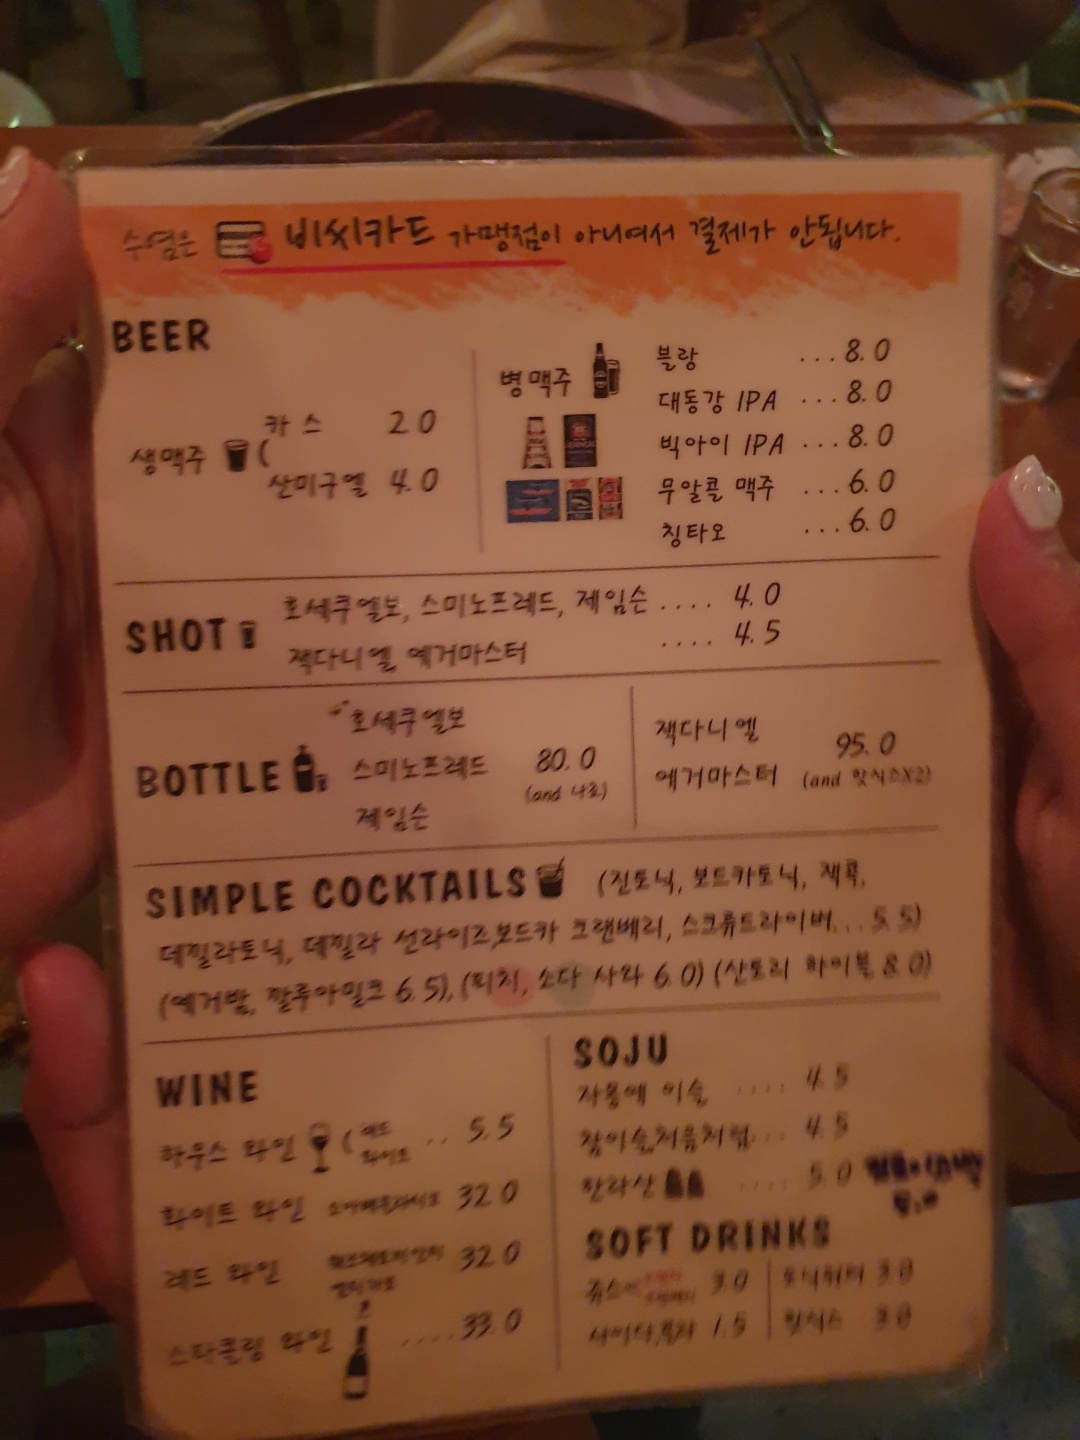 수염은 비씨카드 가맹점이 아니여서 결제가 안됩니다.
BEER
생맥주 (
카스 2.0
산미구엘 4.0
병맥주
블랑 ... 8.0
대동강 IPA ... 8.0
빅아이 IPA ... 8.0
무알콜 맥주 ... 6.0
칭타오 ... 6.0
SHOT
호세쿠엘보, 스미노프레드, 제임슨 .... 4.0
잭다니엘, 예거마스터 .... 4.5
BOTTLE
호세쿠엘보
스미노프레드
제임슨
80.0
(and 나쵸)
잭다니엘
예거마스터
95.0
(and 핫식스X2)
SIMPLE COCKTAILS (진토닉, 보드카토닉, 잭콕,
데낄라토닉, 데낄라 선라이즈,보드카 크랜베리, 스크류드라이버... 5.5)
(예거밤, 깔루아밀크 6.5), (피치, 소다 사와 6.0) (산토리 하이볼 8.0)
WINE
하우스 와인 (레드 화이트 .. 5.5
화이트 와인 32.0
레드 와인 32.0
스파클링 와인 .... 33.0
SOJU
자몽에 이슬 .... 4.5
참이슬,처음처럼... 4.5
한라산 .... 5.0
SOFT DRINKS
쥬스 3.0
토닉워터 3.0
사이다,콜라 1.5
핫식스 3.0